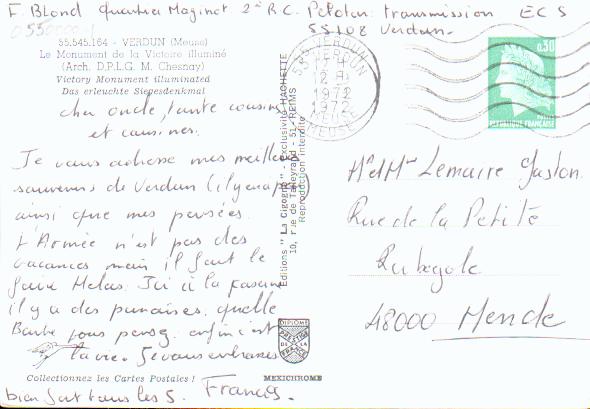 F. Blond Quartier Maginot 2e R.C. Peloton transmission ECS
55108 Verdun.
55.545.164 - VERDUN (Meuse)
Le Monument de la Victoire illuminé
(Arch. D.P.L.G. M. Chesnay)
Victory Monument illuminated
Das erleuchte Siegesdenkmal
cher oncle, tante cousins
et cousines.
Je vous adresse mes meilleurs
souvenirs de Verdun
ainsi que mes pensées.
l'Armée n'est pas des
vacances mais il faut le
faire Helas. Ici à la
il y a des punaises. quelle
vous pensez enfin c'est
la vie. Je vous embrasse
Collectionnez les Cartes Postales !
bien fort tous les 5. Francis.
Editions "La Cigogne" - exclusivité HACHETTE
10, rue de Talleyrand - 51-REIMS
Reproduction interdite
DIPLOME
PRESTIGE
DE LA
FRANCE
MEXICHROME
55 VERDUN
12
1972
MEUSE
0,30
REPUBLIQUE FRANCAISE
Mr et Mme Lemaire Gaston
Rue de la Petite
48000 Mende